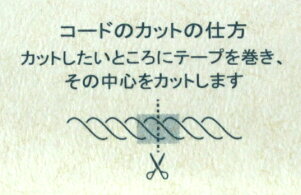 コードのカットの仕方
カットしたいところにテープを巻き、
その中心をカットします